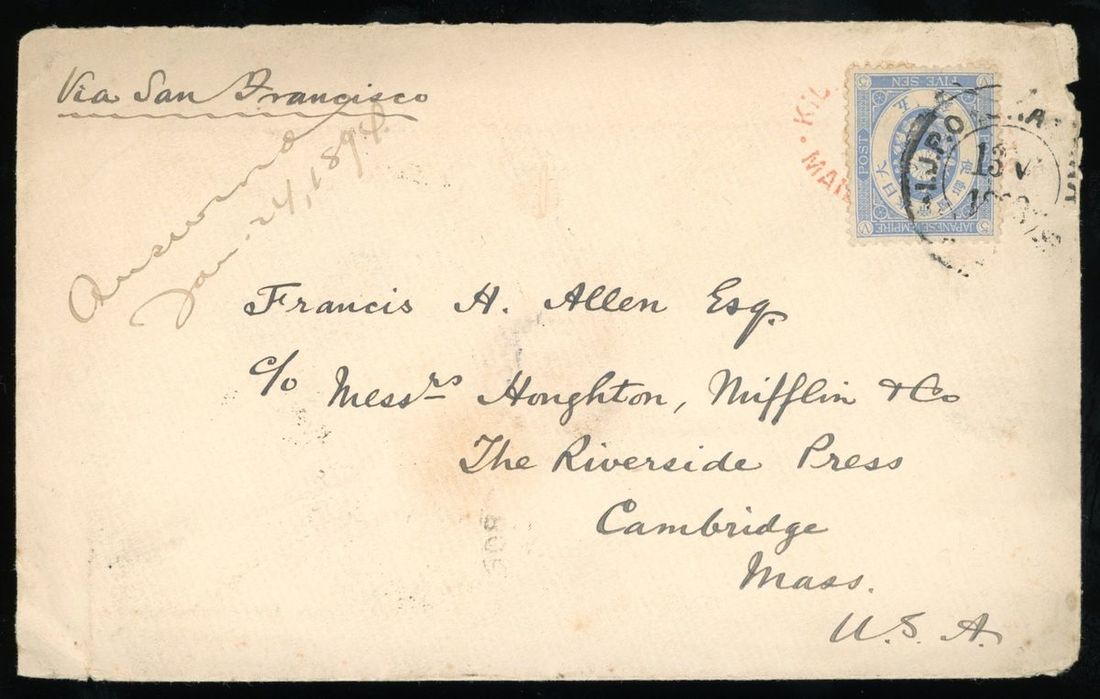 Via San Francisco
Answered
Jan. 24, 1894.
FIVE SEN
POST
JAPANESE EMPIRE
5
V
I.J.P.O
13
V
Francis H. Allen Esq.
c/o Messrs Houghton, Mifflin & Co
The Riverside Press
Cambridge
Mass.
U.S.A.